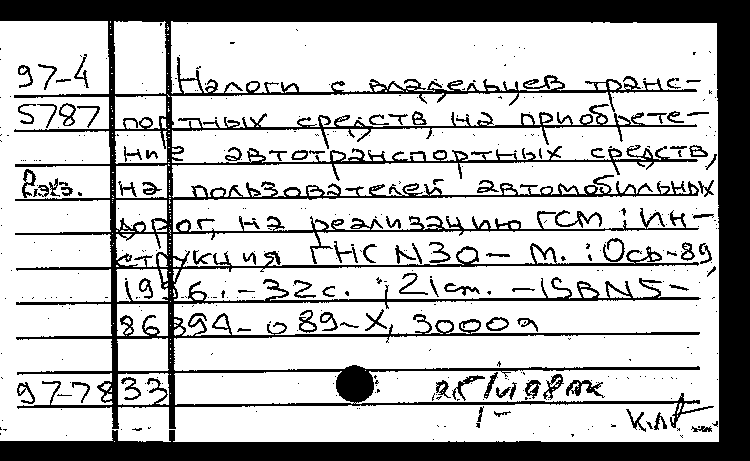 97-4 Налоги с владельцев транс-
5787 портных средств, на приобрете-
ние автотранспортных средств,
2экз. на пользователей автомобильных
дорог, на реализацию ГСМ : Ин-
струкция ГНС N30 - М. : Ось-89,
1996. - 32с. ; 21см. - ISBN5-
86894-089-X, 3000э
97-7833